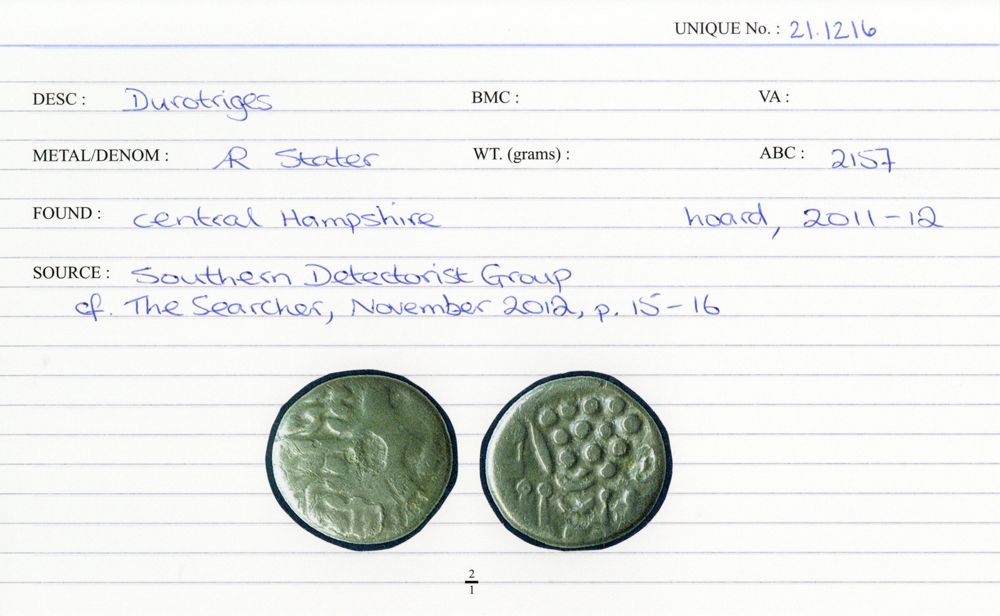 UNIQUE No. : 21.1216
DESC : Durotriges BMC : VA :
METAL/DENOM : AR Stater WT. (grams) : ABC : 2157
FOUND : central Hampshire hoard, 2011-12
SOURCE : Southern Detectorist Group
cf. The Searcher, November 2012, p. 15-16
2
1